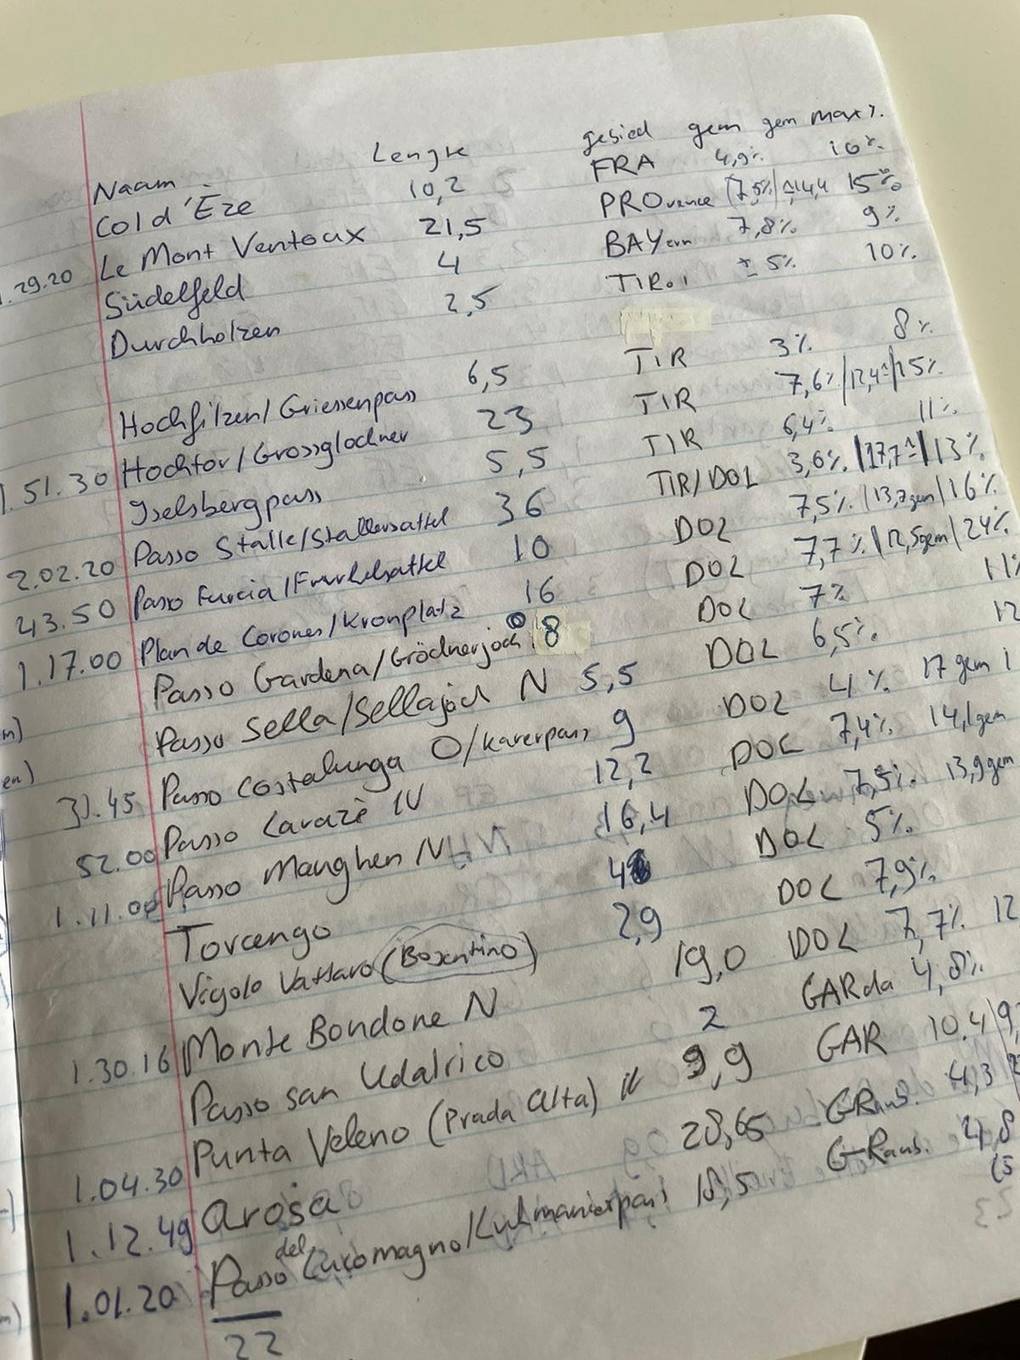 Naam Lengte gebied gem gem max %
Col d'Èze 10,2 FRA 4,9% 10%
1.29.20 Le Mont Ventoux 21,5 PROvence (7,5%) 14,4 15%
Südelfeld 4 BAYern 7,8% 9%
Durchholzen 2,5 TIRol ± 5% 10%
Hochfilzen/Griessenpass 6,5 TIR 3% 8%
1.51.30 Hochtor/Grossglockner 23 TIR 7,6% /12,4 /15%
Iselsbergpass 5,5 TIR 6,4% 11%
2.02.20 Passo Stalle/Stallersattel 36 TIR/DOL 3,6% /17,7 /13%
43.50 Passo Furcia/Furkelsattel 10 DOL 7,5% /13,7gem /16%
1.17.00 Plan de Corones/Kronplatz 16 DOL 7,7% /12,5gem /24%
Passo Gardena/Grödnerjoch 8 DOL 7% 11%
Passo Sella/Sellajoch N 5,5 DOL 6,5% 12
31.45 Passo Costalunga O/Karerpass 9 DOL 4% 17 gem 1
52.00 Passo Lavazè N 12,2 DOL 7,4% 14,1gem
1.11.00 Passo Manghen N 16,4 DOL 7,5% 13,9gem
Torcengo 4 DOL 5%
Vigolo Vattaro (Bosentino) 2,9 DOL 7,9%
1.30.16 Monte Bondone N 19,0 DOL 7,7% 12
Passo san Udalrico 2 GARda 4,8%
1.04.30 Punta Veleno (Prada Alta) 9,9 GAR 10,4 /9,
1.12.49 Arosa 28,65 GRaub. 4,3
1.01.20 Passo del Lucomagno/Lukmanierpass 18,5 GRaub. 4,8
22